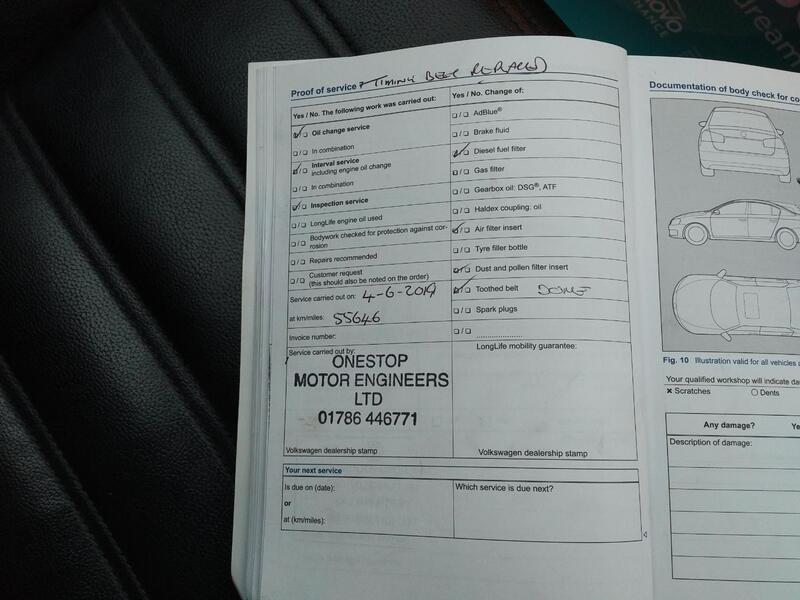 Proof of service + TIMING BELT REPLACED
Yes / No. The following work was carried out:
Oil change service
In combination
Interval service
including engine oil change
In combination
Inspection service
LongLife engine oil used
Bodywork checked for protection against cor-
rosion
Repairs recommended
Customer request
(this should also be noted on the order)
Service carried out on: 4-6-2019
at km/miles: 55646
Invoice number:
Service carried out by:
ONESTOP
MOTOR ENGINEERS
LTD
01786 446771
Volkswagen dealership stamp
Yes / No. Change of:
AdBlue®
Brake fluid
Diesel fuel filter
Gas filter
Gearbox oil: DSG®, ATF
Haldex coupling: oil
Air filter insert
Tyre filler bottle
Dust and pollen filter insert
Toothed belt DONE
Spark plugs
LongLife mobility guarantee:
Volkswagen dealership stamp
Your next service
Is due on (date):
or
at (km/miles):
Which service is due next?
Documentation of body check for co
Fig. 10 Illustration valid for all vehicles
Your qualified workshop will indicate da
× Scratches
Dents
Any damage?
Ye
Description of damage:
dream